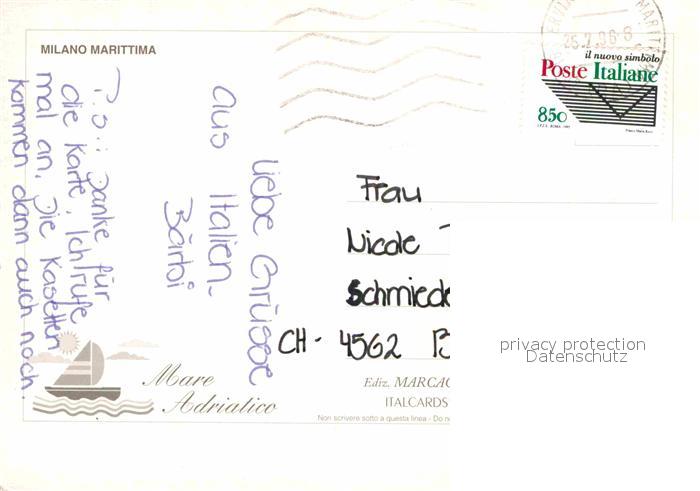 MILANO MARITTIMA
25.7.96-8
il nuovo simbolo
Poste Italiane
850
I.P.Z.S. ROMA
Liebe Grüsse
aus Italien-
Bärbi
P.S.: Danke für
die Karte, Ich rufe
mal an. Die Kasetten
kommen dann auch noch.
Frau
Nicole
Schmiede
CH - 4562 B
Mare
Adriatico
Ediz. MARCAC
ITALCARDS
Non scrivere sotto a questa linea - Do n
privacy protection
Datenschutz